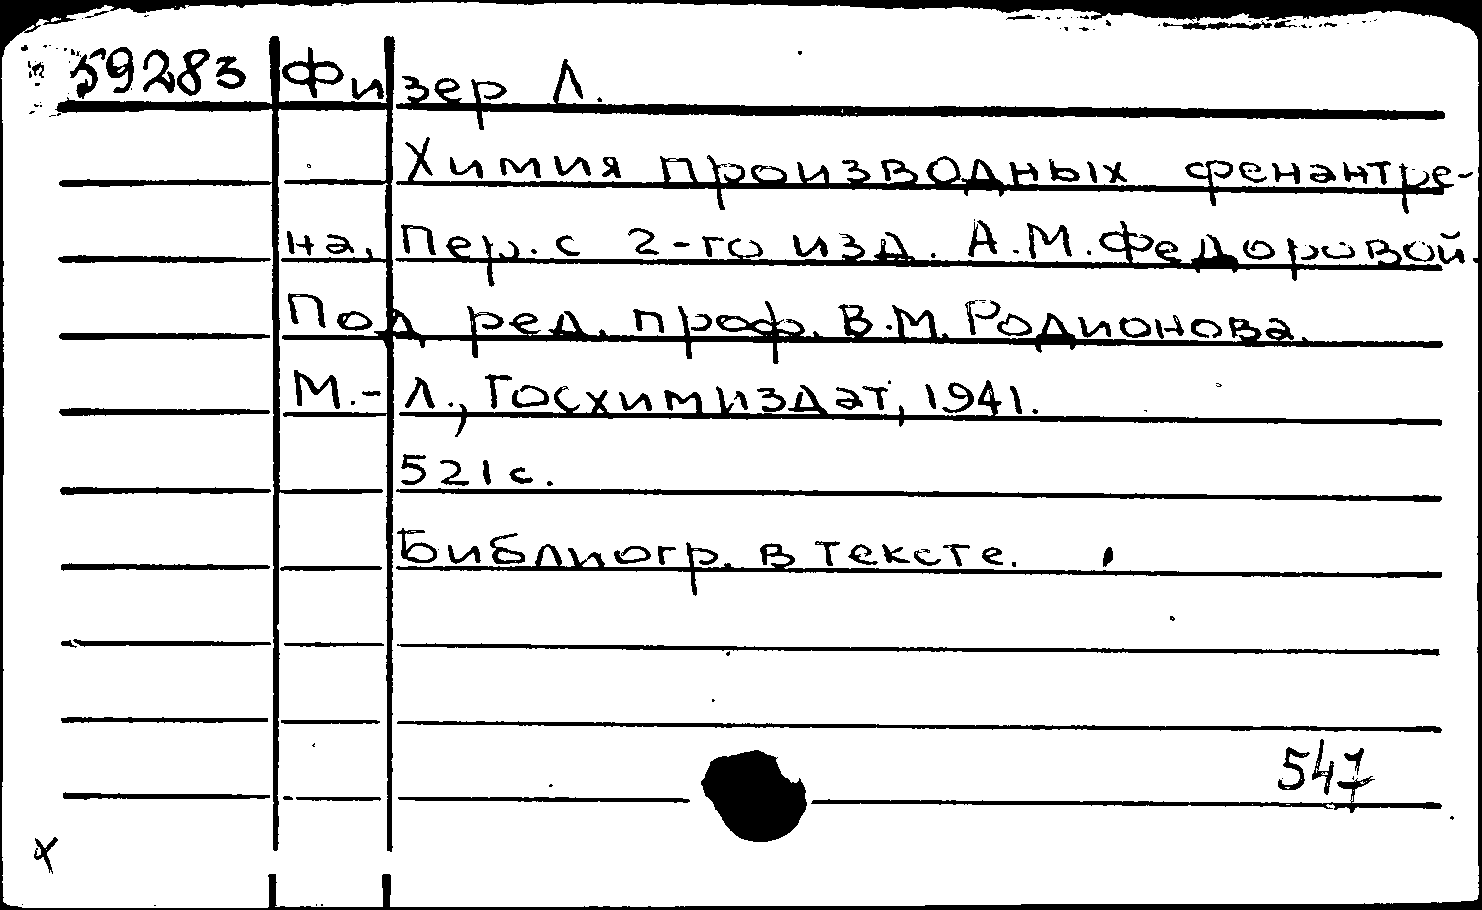 59283 Физер Л.
Химия производных фенантре-
на. Пер. с 2-го изд. А.М.Федоровой.
Под ред. проф. В.М. Родионова.
М.-Л., Госхимиздат, 1941.
521 с.
Библиогр. в тексте.
547
x